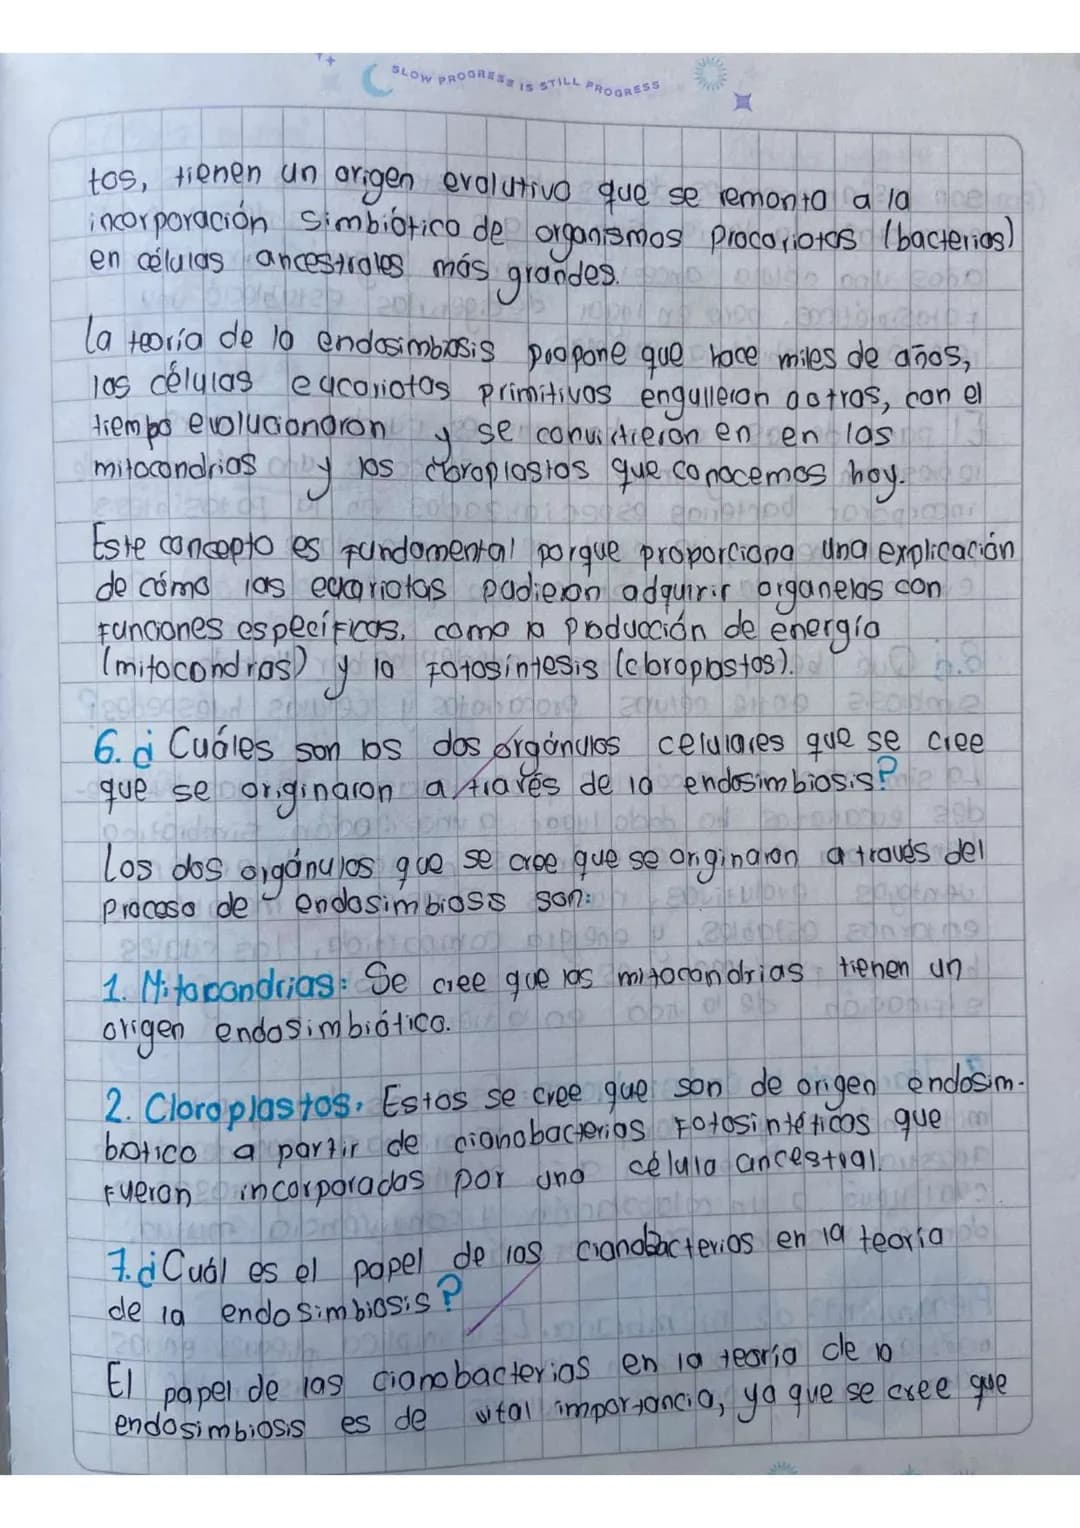 SLOW PROGRESS IS STILL PROGRESS
tos, tienen un origen evolutivo que se remonta a la
incorporación simbiótico de organismos procariotas (bacterias)
en células ancestrales más grandes.
La teoría de la endosimbiosis propone que hace miles de años,
las células eucariotas primitivas engulleron a otras, con el
tiempo evolucionaron y se convirtieron en en las
mitocondrias y los cloroplastos que conocemos hoy.
Este concepto es fundamental porque proporciona una explicación
de cómo las eucariotas pudieron adquirir organelas con
funciones específicas, como la producción de energía
(mitocondras) y la fotosíntesis (cloroplastos).
6. ¿Cuáles son los dos orgánulos celulares que se cree
que se originaron a través de la endosimbiosis?
Los dos orgánulos que se cree que se originaron a través del
proceso de endosimbiosis son:
1. Mitocondrias: Se cree que las mitocondrias tienen un
origen endosimbiótico.
2. Cloroplastos. Estos se cree que son de origen endosim-
biotico a partir de cianobacterias fotosintéticos que
fueron incorporadas por una célula ancestral.
7. ¿Cuál es el papel de las cianobacterias en la teoría
de la endosimbiosis?
El papel de las cianobacterias en la teoría de la
endosimbiosis es de vital importancia, ya que se cree que